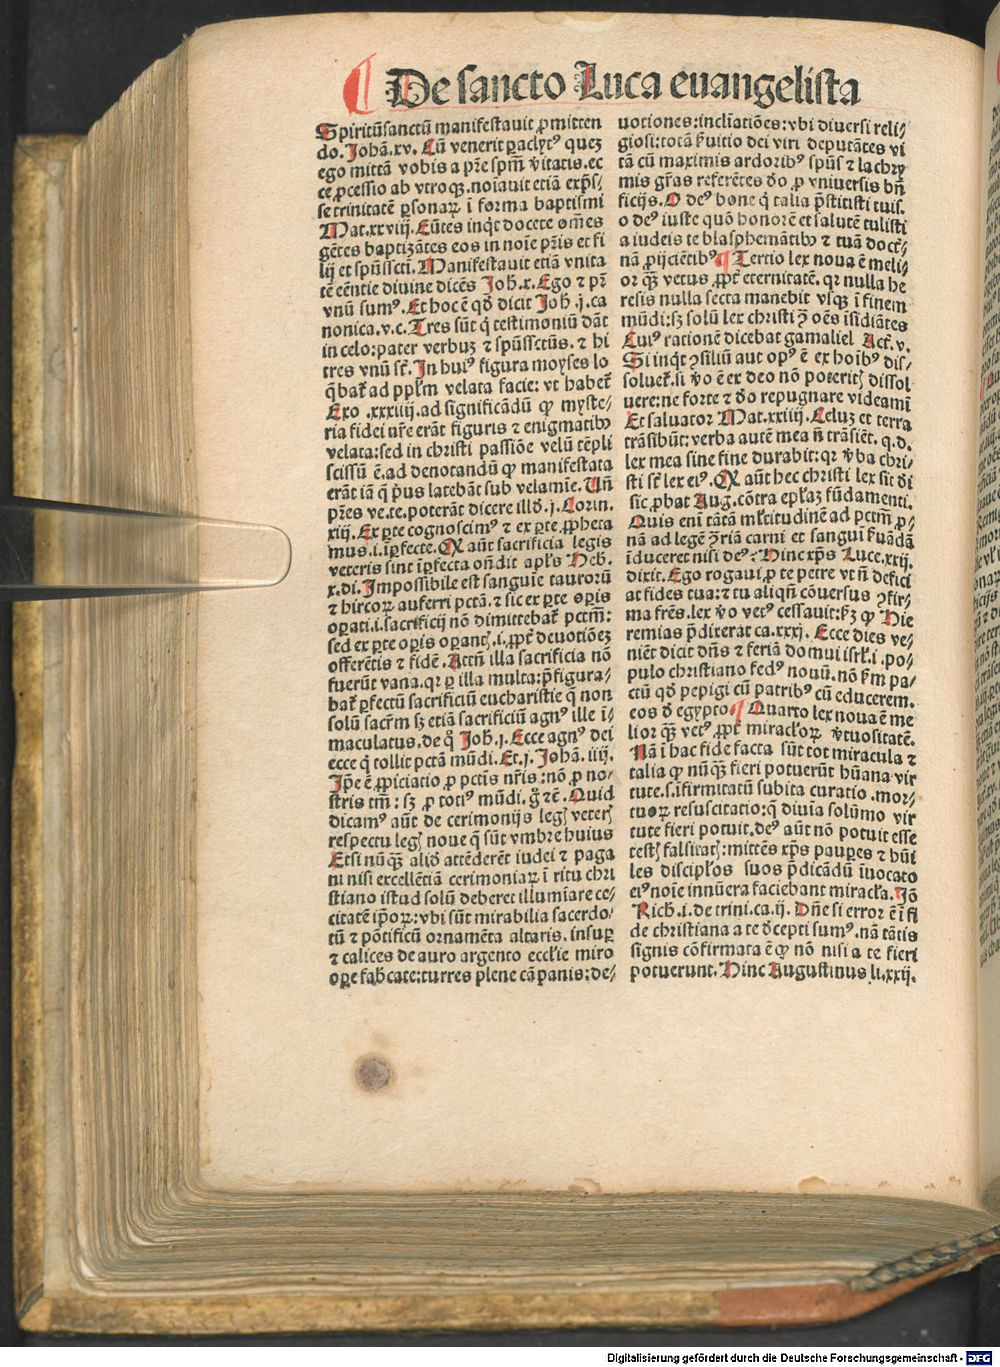 De sancto Luca euangelista
Spiritūsanctū manifestauit ꝓmitten
do. Johā.xv. Cū venerit ꝑaclytꝰ quez
ego mittā vobis a pr̄e spm̄ v̄itatis.ec
ce ꝓcessio ab vtroqꝫ.noīauit etiā exp̄s/
se trinitatē ꝑsonaꝝ ī forma baptismi
Mat.xxviij. Eūtes inqͥt docete om̄es
gētes baptizātes eos in noīe pr̄is et fi
lij et spūssctī. Manifestauit etiā vnita
tē eēntie diuine dicēs Joh̄.x. Ego ⁊ pr̄
vnū sumꝰ. Et hoc ē qd̄ dicit Joh̄.j.ca
nonica.v.c. Tres sūt q̇ testimoniū dāt
in celo:pater verbuꝫ ⁊ spūssctūs. ⁊ hi
tres vnū sūt. In huiꝰ figura moyses lo
q̄bat̄ ad ppl̄m velata facie: vt habet̄
Exo .xxxiiij.ad significādū ꝙ myste/
ria fidei nr̄e erāt figuris ⁊ enigmatibꝰ
velata:sed in christi passiōe velū tēpli
scissū ē.ad denotandū ꝙ manifestata
erāt iā q̄ p̄us latebāt sub velamīe. Un̄
pr̄es ve.te.poterāt dicere illd̄.j. Corin.
xiij. Ex ꝑte cognoscimꝰ ⁊ ex ꝑte ꝓpheta
mus.i.īꝑfecte. Qꝙ aūt sacrificia legis
veteris sint īꝑfecta on̄dit apl̄s Heb.
x.di. Impossibile est sanguīe taurorū
⁊ hircoꝝ auferri pctā. ⁊ sic ex ꝑte oꝑis
oꝑati.i.sacrificij nō dimittebat̄ pctm̄:
sed ex ꝑte oꝑis oꝑantꝭ.i.ꝓpt̄ deuotiōeꝫ
offerētis ⁊ fidē. Attn̄ illa sacrificia nō
fuerūt vana.qꝛ ꝑ illa multa:p̄figura/
bat̄ ꝑfectū sacrificiū eucharistie q̄ non
solū sacr̄m sꝫ etiā sacrificiū agnꝰ ille ī/
maculatus.de qͦ Joh̄.j. Ecce agnꝰ dei
ecce q̇ tollit pctā mūdi. Et.j. Johā. iij.
Ip̄e ē ꝓpiciatio ꝓ pctīs nr̄is:nō ꝓ no/
stris tm̄: sꝫ ꝓ totiꝰ mūdi. ḡ ⁊c̄. Quid
dicamꝰ aūt de cerimonijs legꝭ veterꝭ
respectu legꝭ noue q̄ sūt vmbre huius
Etsi nūqꝫ aliō attēderēt iudei ⁊ paga
ni nisi excellētiā cerimoniaꝝ ī ritu chri
stiano istud solū deberet illumīare ce/
citatē ip̄oꝝ:vbi sūt mirabilia sacerdo/
tū ⁊ pōtificū ornamēta altaris. insuꝑ
⁊ calices de auro argento eccl̄ie miro
oꝑe fabͥcate:turres plene cāpanis:de/
uotiones:inclīatiōes:vbi diuersi reli/
giosi:totā ẜuitio dei viri deputātes vi
tā cū maximis ardoribꝰ spūs ⁊ lachry
mis gr̄as referētes dō ꝓ vniuersis bn̄
ficijs. O deꝰ bone q̇ talia p̄stitisti tuis.
o deꝰ iuste quō honorē et salutē tulisti
a iudeis te blasphemātibꝰ ⁊ tuā doct̄/
nā ꝓijciētibꝰ ¶ Tertio lex noua ē meli/
or q̄ꝫ vetus ꝓpt̄ eternitatē. qꝛ nulla he
resis nulla secta manebit vsqꝫ ī finem
mūdi:sꝫ solū lex christi ꝯ̄ oēs īsidiātes
Cuiꝰ rationē dicebat gamaliel Act̄.v.
Si inqͥt ꝯsiliū aut opꝰ ē ex hoībꝰ dis/
soluet̄.si v̄o ē ex deo nō poteritꝭ dissol
uere:ne forte ⁊ dō repugnare videamī
Et saluator Mat.xxiiij. Celuꝫ et terra
trāsibūt:verba autē mea n̄ trāsiēt. q.d.
lex mea sine fine durabit:qꝛ v̄ba chri/
sti sūt lex eiꝰ. Qꝙ aūt hec christi lex sit dī
sic ꝓbat Aug.cōtra epl̄aꝫ fūdamenti.
Quis enī tātā ml̄titudinē ad pctm̄ ꝓ/
nā ad legē ꝯ̄riā carni et sanguī ẜuādā
īduceret nisi deꝰ? Hinc xp̄s Luce.xxij.
dixit. Ego rogaui ꝓ te petre vt n̄ defici
at fides tua:⁊ tu aliqn̄ cōuersus ꝯfir/
ma fr̄es.lex v̄o vetꝰ cessauit:ẜꝫ ꝙ Hie
remias p̄dixerat ca.xxxj. Ecce dies ve/
niēt dicit dn̄s ⁊ feriā domui isrl̄.i .po/
pulo christiano fedꝰ nouū.nō ẜm pa/
ctū qd̄ pepigi cū patribꝰ cū educerem.
eos d̄ egypto ¶ Quarto lex noua ē me
lior q̄ꝫ vetꝰ ꝓpt̄ miracl̄oꝝ v̄tuositatē.
Nā ī hac fide facta sūt tot miracula ⁊
talia ꝙ nūq̄ꝫ fieri potuerūt hūana vir
tute.s.īfirmitatū subita curatio .mor/
tuoꝝ resuscitatio:q̄ diuīa solūmo vir
tute fieri potuit.deꝰ aūt nō potuit esse
testꝭ falsitatꝭ:mittēs xp̄s pauꝑes ⁊ hūi
les discipl̄os suos p̄dicādū īuocato
eiꝰ noīe innūera faciebant miracl̄a. Jō
Rich̄.i.de trini.ca.ij. Dn̄e si error ē ī fi
de christiana a te d̄cepti sumꝰ.nā tātis
signis cōfirmata ē ꝙ nō nisi a te fieri
potuerunt. Hinc Augustinus li.xxij.
Digitalisierung gefördert durch die Deutsche Forschungsgemeinschaft - DFG